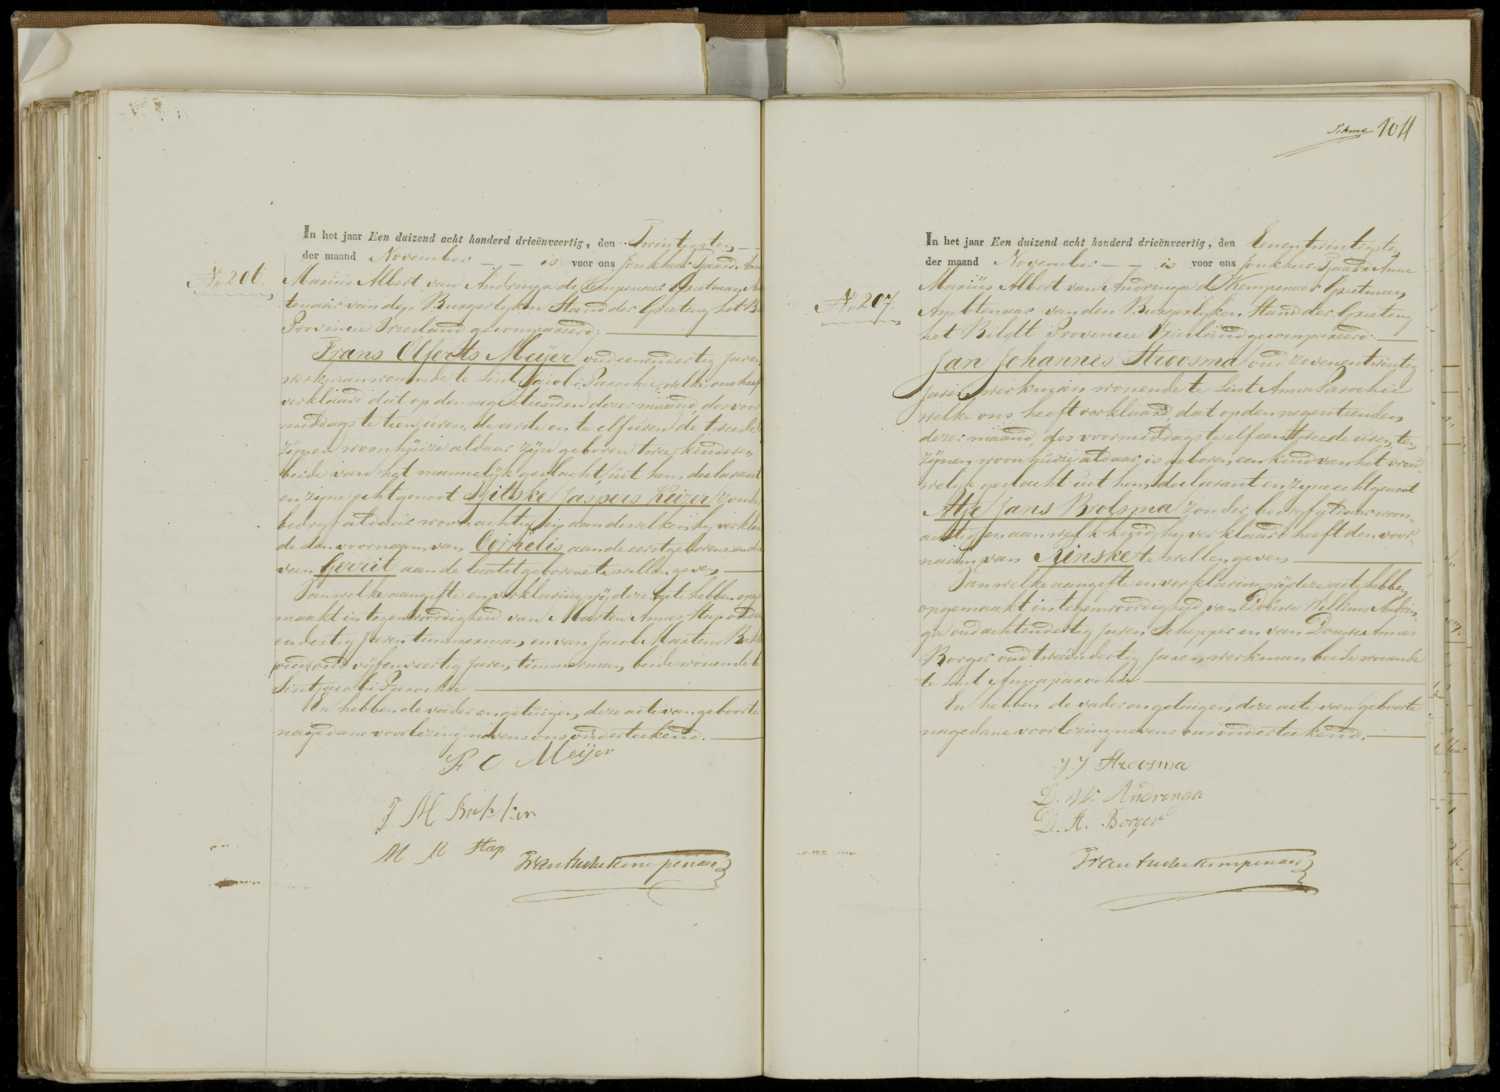 104
In het jaar Een duizend acht honderd drieënveertig, den Twintigsten
der maand November is voor ons Jonkheer Tjaard Anne
No 206. Marius Albert van Andringa de Kempenaer Grietman, Amb
tenaar van den Burgerlijken Stand der Grieteny het B
Provincie Friesland gecompareerd,
Frans Olferts Meijer oud eenendertig jaren,
werkman wonende te Sint Jacobi Parochie, welke ons heef
verklaard dat op den negentienden dezer maand, des voor
middags te tien uren, de eerste en te elf uren de tweede
zynen woonhuize aldaar zyn geboren twee kinderen
beide van het mannelyk geslacht, uit hem declarant
en zyne echtgenoot Jaspers Keizer zonder
bedryf aldaar woonachtig, en aan dewelke hy verklaar
de den voornaam van Cornelis aan de eerstgeborene en di
van Gerrit aan de laatstgeborene te willen geven,
Van welke aangifte en verklaring wy deze acte hebben opge
maakt in tegenwoordigheid van Marten Annes Hap oud
en dertig jaren timmerman, en van Jacob Martens Bakk
oud vyfenveertig jaren, timmerman, beide wonende t
Sint Jacobi Parochie
En hebben de vader en getuigen, deze acte van geboorte
na gedane voorlezing nevens ons onderteekend.
F O Meijer
J M Bakker
M A Hap
In het jaar Een duizend acht honderd drieënveertig, den Eenentwintigsten
der maand November is voor ons Jonkheer Tjaard Anne
No 207. Marius Albert van Andringa de Kempenaer Grietman,
Ambtenaar van den Burgerlijken Stand der Grieteny
het Bildt Provincie Friesland gecompareerd.
Jan Johannes Stroosma oud zevenentwintig
jaren, werkman wonende te Sint Anna Parochie
welke ons heeft verklaard, dat op den negentienden
dezer maand, des voormiddags te elf uren, te
zynen woonhuize aldaar, is geboren, een kind van het vrou
welyk geslacht uit hem, declarant en zyne echtgenoot
Jans Bolsma zonder bedryf, aldaar woon
achtig, en aan welk kind hy verklaard heeft den voor
naam, van Rinske te willen geven
Van welke aangifte en verklaring wy deze acte hebben,
opgemaakt in tegenwoordigheid, van Willems Andrin
ga oud achtendertig jaren, Schipper en van Douwe Annes
Borger oud tweeëndertig jaren, werkman, beide wonende
te Sint Annaparochie
En hebben de vader en getuigen, deze acte van geboorte
na gedane voorlezing nevens ons onderteekend.
J J Stroosma
D. W. Andringa
D. A. Borger